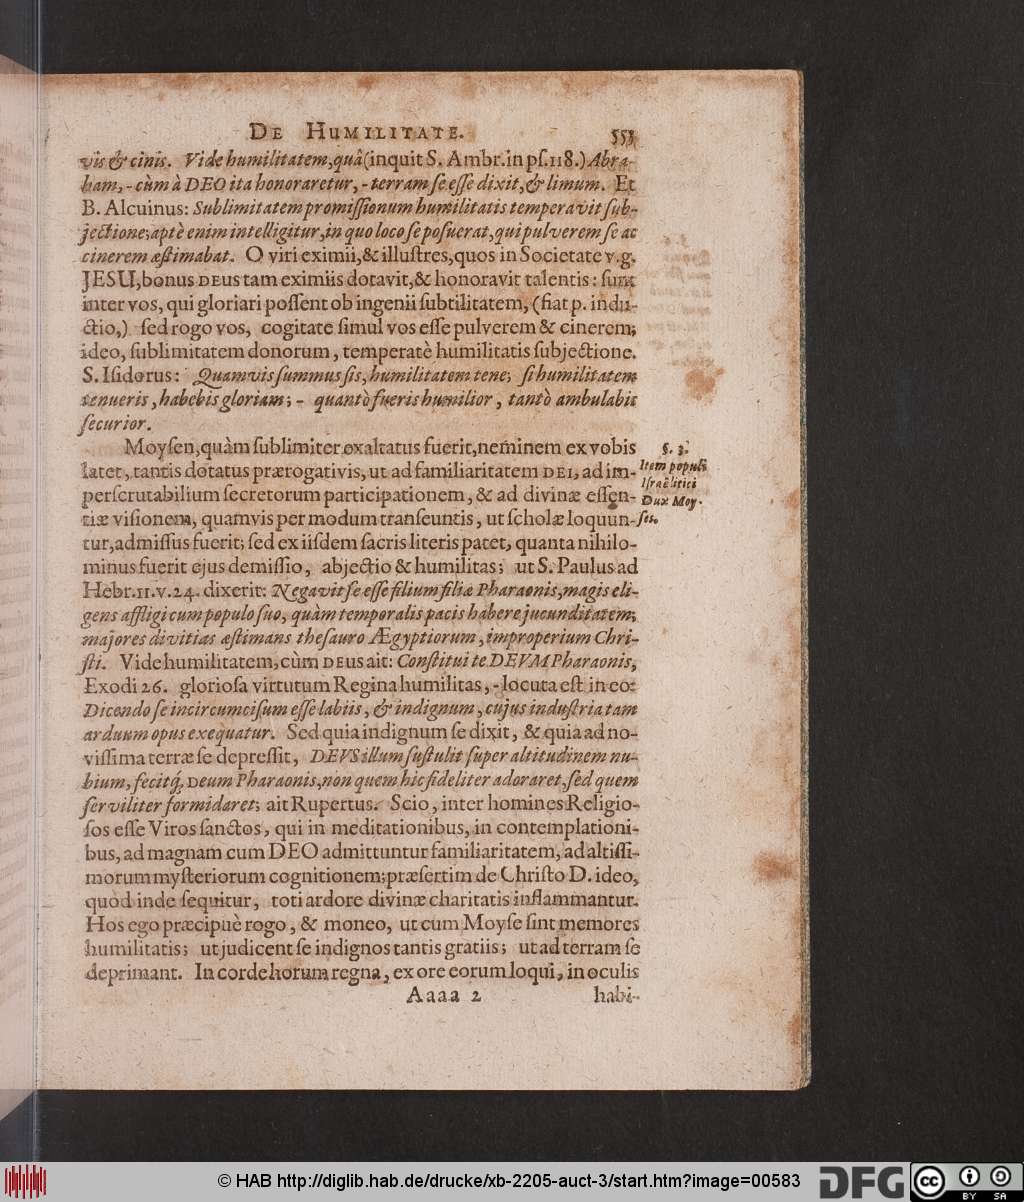 DE HUMILITATE. 553
vis & cinis. Vide humilitatem, quâ (inquit S. Ambr. in ps. 118.) Abra-
ham, - cùm à DEO ita honoraretur, - terram se esse dixit, & limum. Et
B. Alcuinus: Sublimitatem promissionum humilitatis temperavit sub-
jectione; aptè enim intelligitur, in quo loco se posuerat, qui pulverem se ac
cinerem æstimabat. O viri eximii, & illustres, quos in Societate v.g.
JESU, bonus DEus tam eximiis dotavit, & honoravit talentis: sunt
inter vos, qui gloriari possent ob ingenii subtilitatem, (fiat p. indu-
ctio,) sed rogo vos, cogitate simul vos esse pulverem & cinerem;
ideo, sublimitatem donorum, temperatè humilitatis subjectione.
S. Isidorus: Quamvis summus sis, humilitatem tene; si humilitatem
tenueris, habebis gloriam; - quantò fueris humilior, tantò ambulabis
securior.
Moysen, quàm sublimiter exaltatus fuerit, neminem ex vobis
latet, tantis dotatus prærogativis, ut ad familiaritatem DEI, ad im-
perscrutabilium secretorum participationem, & ad divinæ essen-
tiæ visionem, quamvis per modum transeuntis, ut scholæ loquun-
tur, admissus fuerit; sed ex iisdem sacris literis patet, quanta nihilo-
minus fuerit ejus demissio, abjectio & humilitas; ut S. Paulus ad
Hebr. 11. v. 24. dixerit: Negavit se esse filium filiæ Pharaonis, magis eli-
gens affligi cum populo suo, quàm temporalis pacis habere jucunditatem;
majores divitias æstimans thesauro Ægyptiorum, improperium Chri-
sti. Vide humilitatem, cùm DEus ait: Constitui te DEVM Pharaonis,
Exodi 26. gloriosa virtutum Regina humilitas, - locuta est in eo:
Dicendo se incircumcisum esse labiis, & indignum, cujus industria tam
arduum opus exequatur. Sed quia indignum se dixit, & quia ad no-
vissima terræ se depressit, DEVS illum sustulit super altitudinem nu-
bium, fecitq́, DEum Pharaonis, non quem hic fideliter adoraret, sed quem
serviliter formidaret; ait Rupertus. Scio, inter homines Religio-
sos esse Viros sanctos, qui in meditationibus, in contemplationi-
bus, ad magnam cum DEO admittuntur familiaritatem, ad altissi-
morum mysteriorum cognitionem; præsertim de Christo D. ideo,
quòd inde sequitur, toti ardore divinæ charitatis inflammantur.
Hos ego præcipuè rogo, & moneo, ut cum Moyse sint memores
humilitatis; ut judicent se indignos tantis gratiis; ut ad terram se
deprimant. In corde horum regna, ex ore eorum loqui, in oculis
Aaaa 2 habi-
§. 3.
Item populi
Israëlitici
Dux Moy-
ses.
© HAB http://diglib.hab.de/drucke/xb-2205-auct-3/start.htm?image=00583
DFG
cc BY SA